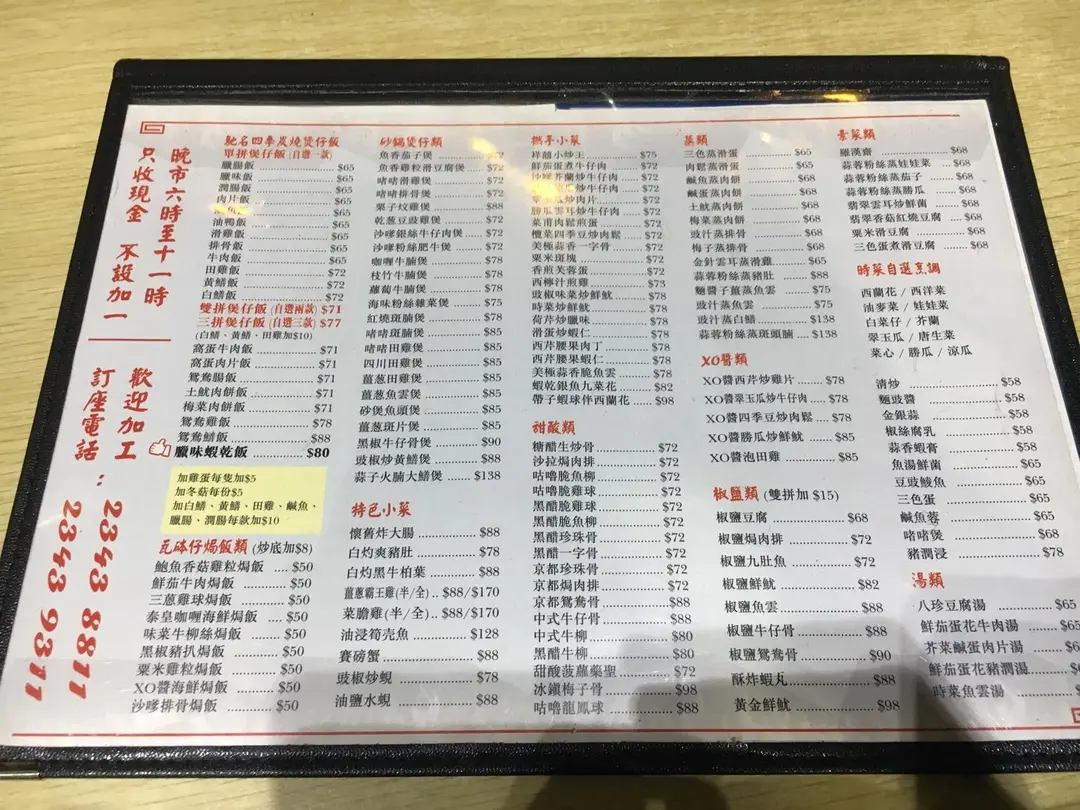 晚市六時至十一時
只收現金 不設加一
歡迎加工
訂座電話：
2343 8811
2343 9311
馳名四季炭燒煲仔飯
單拼煲仔飯 (自選一款)
臘腸飯 $65
臘味飯 $65
潤腸飯 $65
肉片飯 $65
$65
油鴨飯 $65
滑雞飯 $65
排骨飯 $65
牛肉飯 $65
田雞飯 $72
黃鱔飯 $72
白鱔飯 $72
雙拼煲仔飯 (自選兩款) $71
三拼煲仔飯 (自選三款) $77
(白鱔、黃鱔、田雞加$10)
窩蛋牛肉飯 $71
窩蛋肉片飯 $71
鴛鴦腸飯 $71
土魷肉餅飯 $71
梅菜肉餅飯 $71
鴛鴦雞飯 $78
鴛鴦鱔飯 $88
臘味蝦乾飯 $80
加雞蛋每隻加$5
加冬菇每份$5
加白鱔、黃鱔、田雞、鹹魚、
臘腸、潤腸每款加$10
瓦砵仔焗飯類 (炒底加$8)
鮑魚香菇雞粒焗飯 $50
鮮茄牛肉焗飯 $50
三蔥雞球焗飯 $50
泰皇咖喱海鮮焗飯 $50
味菜牛柳絲焗飯 $50
黑椒豬扒焗飯 $50
粟米雞粒焗飯 $50
XO醬海鮮焗飯 $50
沙嗲排骨焗飯 $50
砂鍋煲仔類
魚香茄子煲 $72
魚香雞粒滑豆腐煲 $72
啫啫滑雞煲 $72
啫啫排骨煲 $72
栗子炆雞煲 $88
乾蔥豆豉雞煲 $72
沙嗲銀絲牛仔肉煲 $72
沙嗲粉絲肥牛煲 $72
咖喱牛腩煲 $78
枝竹牛腩煲 $78
蘿蔔牛腩煲 $78
海味粉絲雜菜煲 $75
紅燒斑腩煲 $78
啫啫斑腩煲 $85
啫啫田雞煲 $85
四川田雞煲 $85
薑蔥田雞煲 $85
薑蔥魚雲煲 $85
砂煲魚頭煲 $85
薑蔥斑片煲 $85
黑椒牛仔骨煲 $90
豉椒炒黃鱔煲 $88
蒜子火腩大鱔煲 $138
特色小菜
懷舊炸大腸 $88
白灼爽豬肚 $78
白灼黑牛柏葉 $88
薑蔥霸王雞(半/全) $88/$170
菜膽雞(半/全) $88/$170
油浸筍壳魚 $128
賽磅蟹 $88
豉椒炒蜆 $78
油鹽水蜆 $88
撚手小菜
祥囍小炒王 $75
鮮茄蛋煮牛仔肉 $72
沙嗲芥蘭炒牛仔肉 $72
炒牛仔肉 $72
炒肉片 $72
勝瓜雲耳炒牛仔肉 $72
菜甫肉鬆煎蛋 $72
欖菜四季豆炒肉鬆 $72
美極蒜香一字骨 $72
粟米斑塊 $72
香煎芙蓉蛋 $72
西檸汁煎雞 $73
豉椒味菜炒鮮魷 $78
時菜炒鮮魷 $78
荷芹炒臘味 $78
滑蛋炒蝦仁 $78
西芹腰果肉丁 $78
西芹腰果蝦仁 $78
美極蒜香脆魚雲 $78
蝦乾銀魚九菜花 $82
帶子蝦球伴西蘭花 $98
甜酸類
糖醋生炒骨 $72
沙拉焗肉排 $72
咕嚕脆魚柳 $72
咕嚕脆雞球 $72
黑醋脆雞球 $72
黑醋脆魚柳 $72
黑醋珍珠骨 $72
黑醋一字骨 $72
京都珍珠骨 $72
京都焗肉排 $72
京都鴛鴦骨 $88
中式牛仔骨 $88
中式牛柳 $80
黑醋牛柳 $80
甜酸菠蘿藥聖 $72
冰鎮梅子骨 $98
咕嚕龍鳳球 $88
蒸類
三色蒸滑蛋 $65
肉鬆蒸滑蛋 $65
鹹魚蒸肉餅 $68
鹹蛋蒸肉餅 $68
土魷蒸肉餅 $68
梅菜蒸肉餅 $68
豉汁蒸排骨 $68
梅子蒸排骨 $68
金針雲耳蒸滑雞 $65
蒜蓉粉絲蒸豬肚 $88
麵醬子薑蒸魚雲 $75
豉汁蒸魚雲 $75
豉汁蒸白鱔 $138
蒜蓉粉絲蒸斑頭腩 $138
XO醬類
XO醬西芹炒雞片 $78
XO醬翠玉瓜炒牛仔肉 $78
XO醬四季豆炒肉鬆 $78
XO醬勝瓜炒鮮魷 $85
XO醬泡田雞 $85
椒鹽類 (雙拼加 $15)
椒鹽豆腐 $68
椒鹽焗肉排 $72
椒鹽九肚魚 $72
椒鹽鮮魷 $82
椒鹽魚雲 $88
椒鹽牛仔骨 $88
椒鹽鴛鴦骨 $90
酥炸蝦丸 $88
黃金鮮魷 $98
素菜類
羅漢齋 $68
蒜蓉粉絲蒸娃娃菜 $68
蒜蓉粉絲蒸茄子 $68
蒜蓉粉絲蒸勝瓜 $68
翡翠雲耳炒鮮菌 $68
翡翠香菇紅燒豆腐 $68
粟米滑豆腐 $68
三色蛋煮滑豆腐 $68
時菜自選烹調
西蘭花 / 西洋菜
油麥菜 / 娃娃菜
白菜仔 / 芥蘭
翠玉瓜 / 唐生菜
菜心 / 勝瓜 / 涼瓜
清炒 $58
麵豉醬 $58
金銀蒜 $58
椒絲腐乳 $58
蒜香蝦膏 $58
魚湯鮮菌 $65
豆豉鯪魚 $65
三色蛋 $65
鹹魚蓉 $65
啫啫煲 $68
豬潤浸 $78
湯類
八珍豆腐湯 $65
鮮茄蛋花牛肉湯 $65
芥菜鹹蛋肉片湯
鮮茄蛋花豬潤湯
時菜魚雲湯